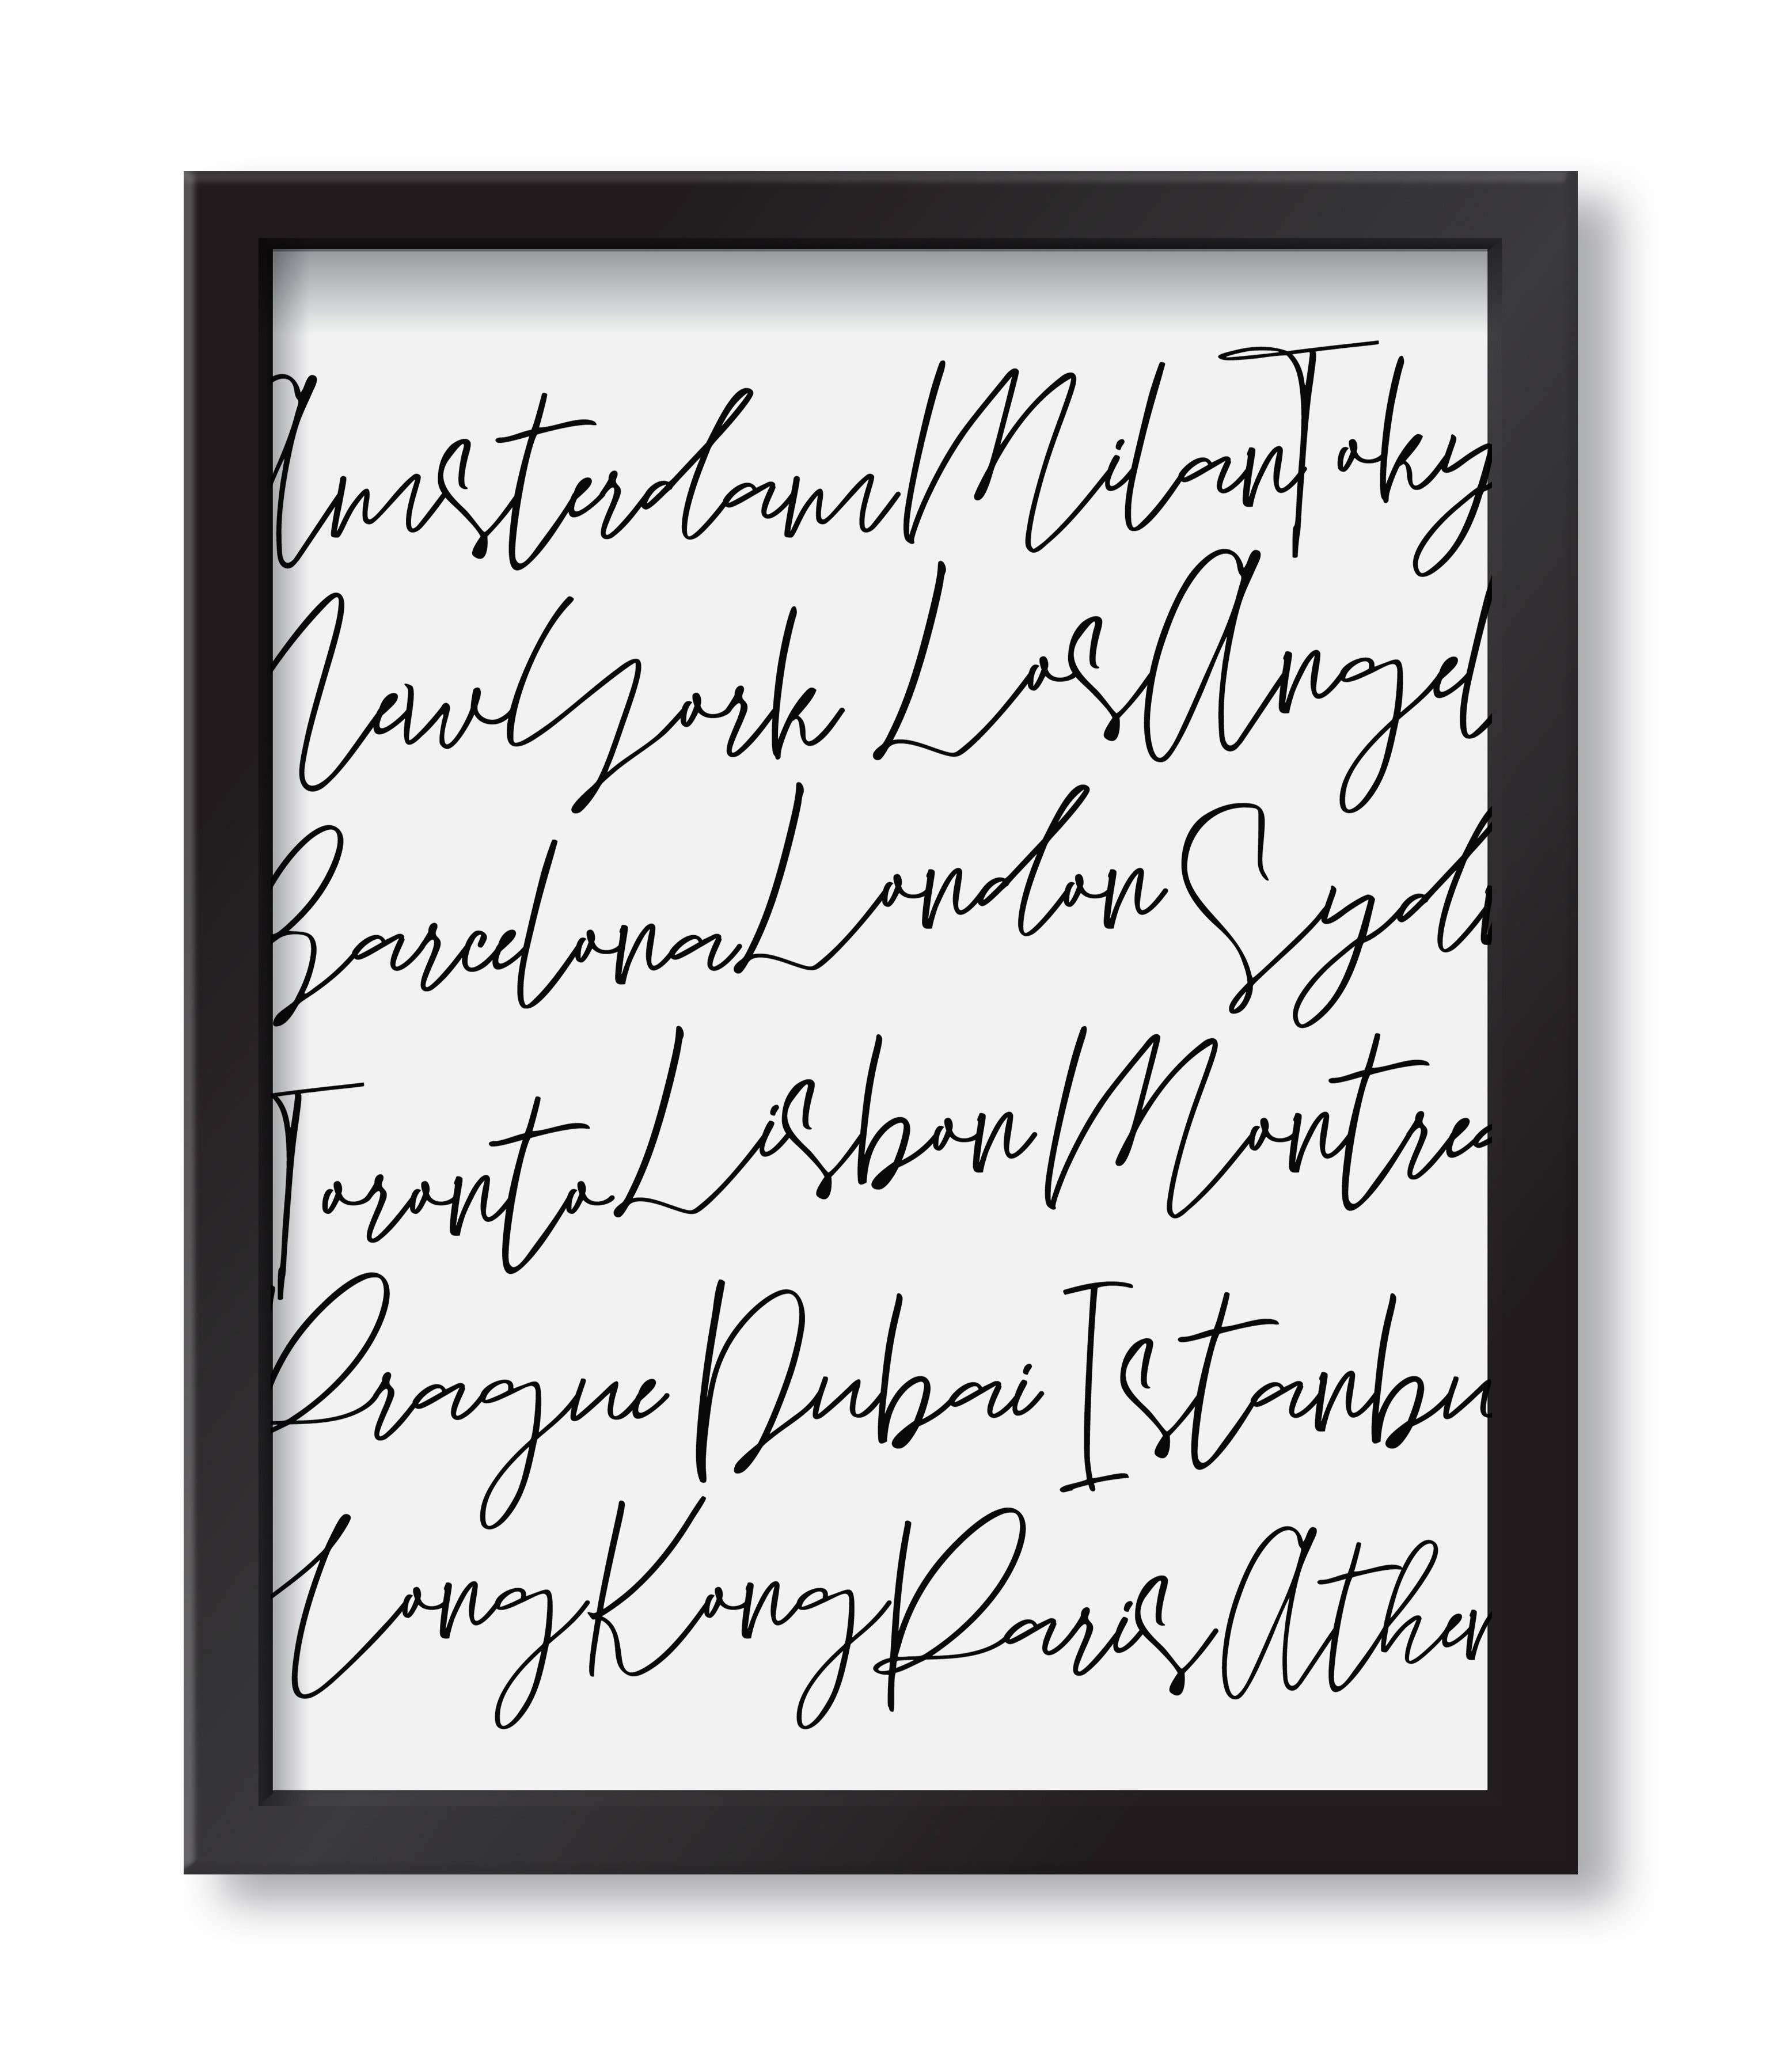 Amsterdam Milan Toky
New York Los Angel
Barcelona London Sydn
Toronto Lisbon Montrea
Prague Dubai Istanbu
Hong Kong Paris Athen